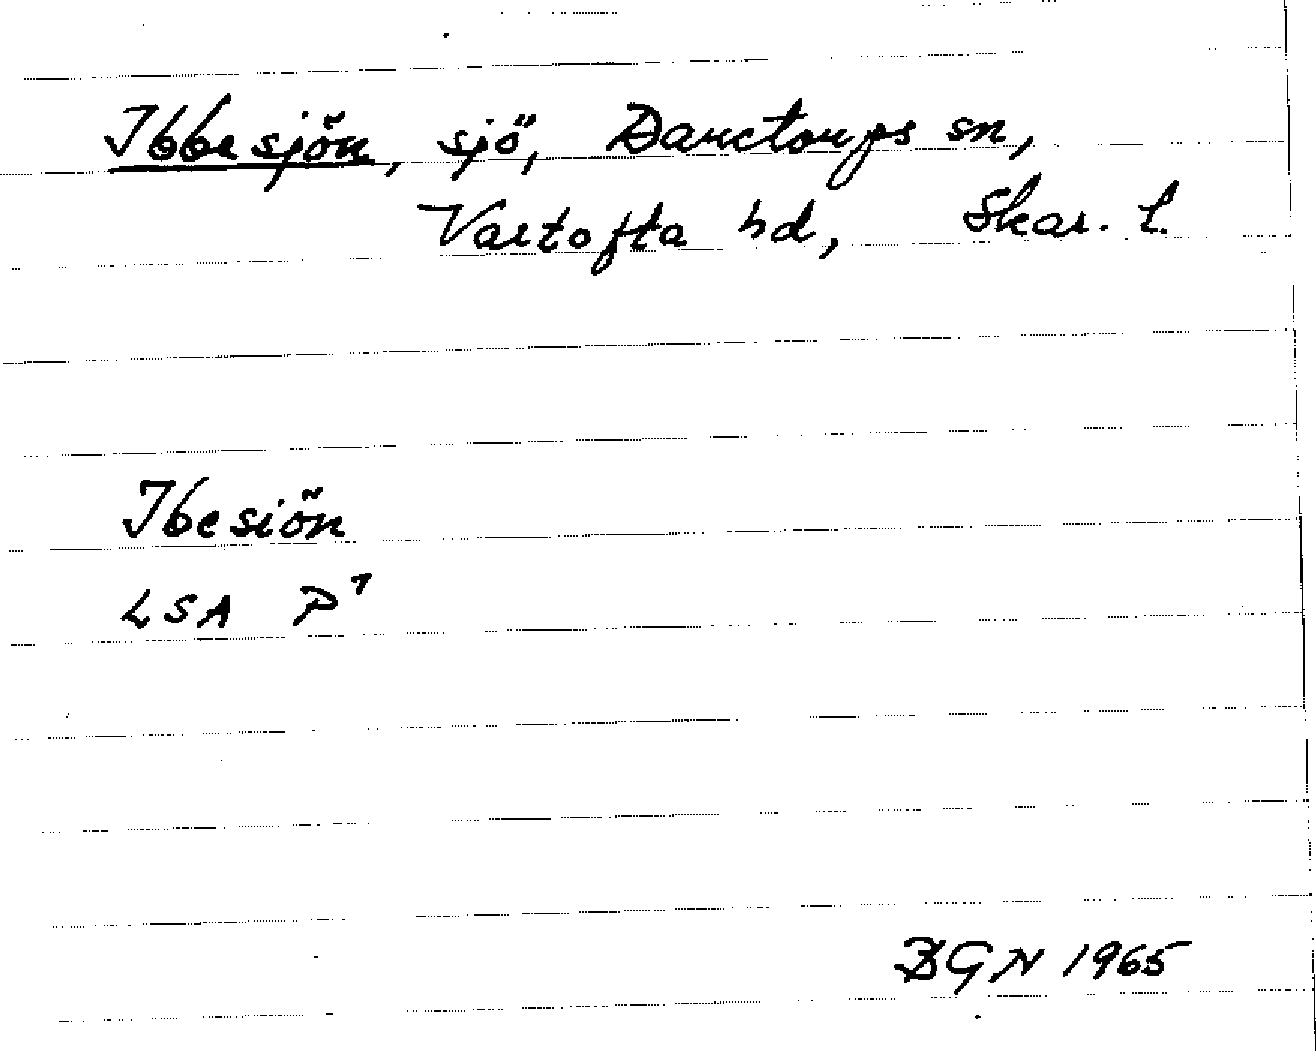 Ibbesjön, sjö, Daretorps sn,
Vartofta hd, Skar. l.
Ibesiön
LSA P7
BGN 1965